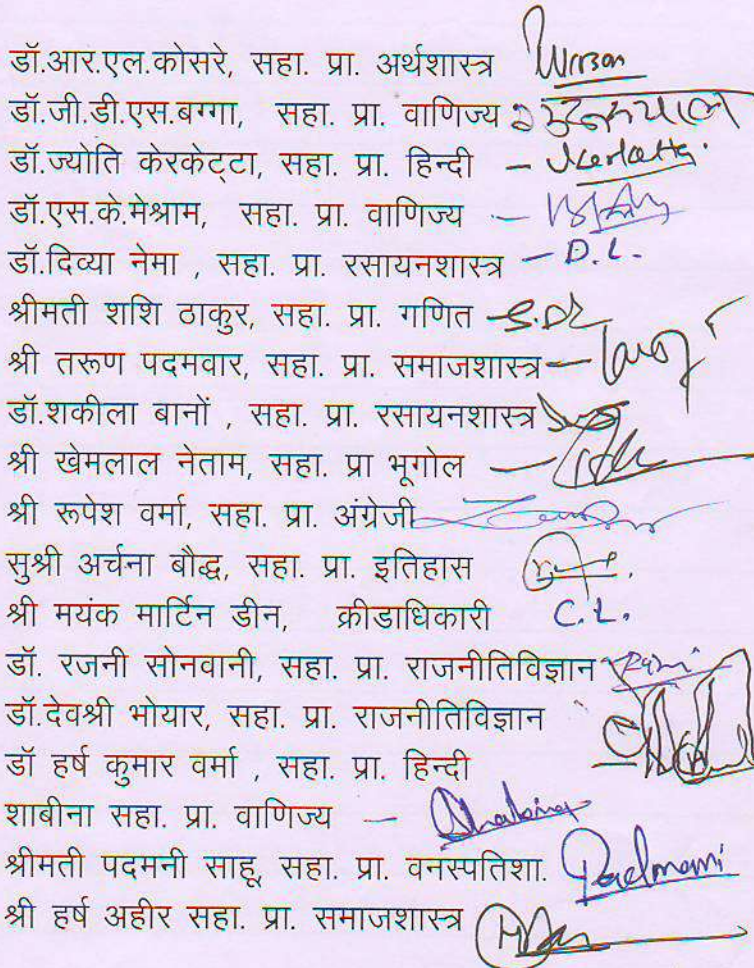 डॉ.आर.एल.कोसरे, सहा. प्रा. अर्थशास्त्र
डॉ.जी.डी.एस.बग्गा, सहा. प्रा. वाणिज्य
डॉ.ज्योति केरकेट्टा, सहा. प्रा. हिन्दी – Jkerketta.
डॉ.एस.के.मेश्राम, सहा. प्रा. वाणिज्य –
डॉ.दिव्या नेमा , सहा. प्रा. रसायनशास्त्र – D.L.
श्रीमती शशि ठाकुर, सहा. प्रा. गणित –
श्री तरूण पदमवार, सहा. प्रा. समाजशास्त्र –
डॉ.शकीला बानों , सहा. प्रा. रसायनशास्त्र
श्री खेमलाल नेताम, सहा. प्रा भूगोल –
श्री रूपेश वर्मा, सहा. प्रा. अंग्रेजी
सुश्री अर्चना बौद्ध, सहा. प्रा. इतिहास
श्री मयंक मार्टिन डीन, क्रीडाधिकारी C.L.
डॉ. रजनी सोनवानी, सहा. प्रा. राजनीतिविज्ञान
डॉ.देवश्री भोयार, सहा. प्रा. राजनीतिविज्ञान
डॉ हर्ष कुमार वर्मा , सहा. प्रा. हिन्दी
शाबीना सहा. प्रा. वाणिज्य – Shabina
श्रीमती पदमनी साहू, सहा. प्रा. वनस्पतिशा. Padmani
श्री हर्ष अहीर सहा. प्रा. समाजशास्त्र